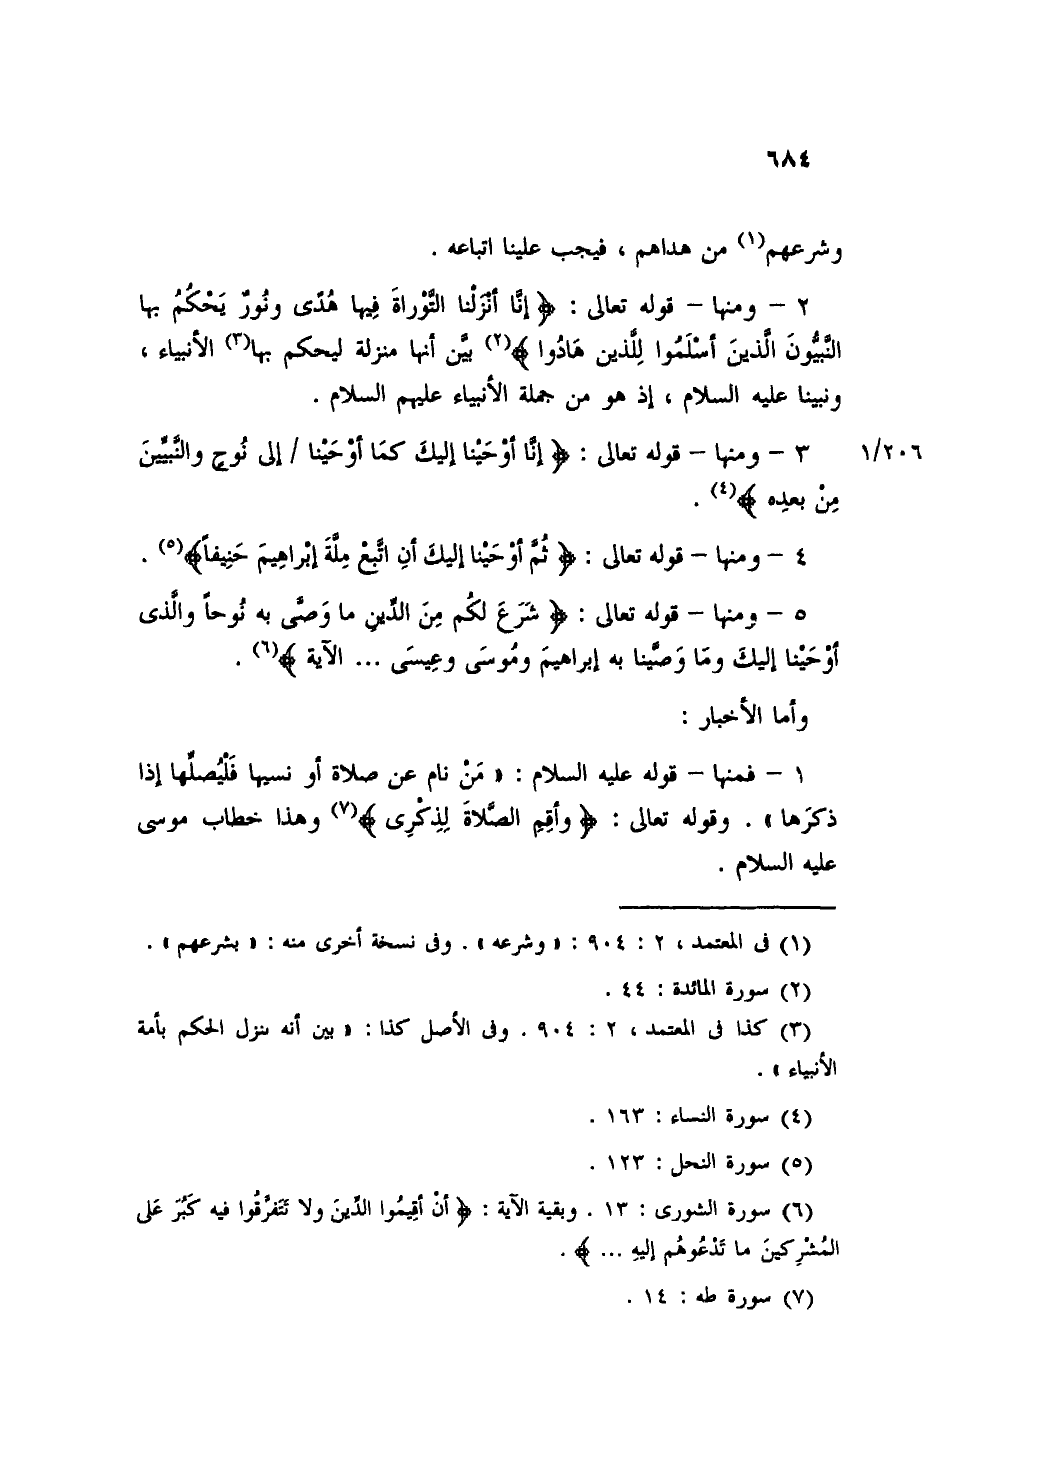 ٦٨٤
وشرعهم(١) من هداهم ، فيجب علينا اتباعه .
٢ – ومنها – قوله تعالى : ﴿ إنَّا أنْزَلْنا التَّوْراةَ فِيها هُدًى ونُورٌ يَحْكُمُ بها
النَّبيُّونَ الَّذينَ أسْلَمُوا لِلَّذين هَادُوا ﴾(٢) بيَّن أنها منزلة ليحكم بها(٣) الأنبياء ،
ونبينا عليه السلام ، إذ هو من جملة الأنبياء عليهم السلام .
٣ – ومنها – قوله تعالى : ﴿ إنَّا أوْحَيْنا إليكَ كمَا أوْحَيْنا / إلى نُوحٍ والنَّبيِّينَ ١/٢٠٦
مِنْ بعدِه ﴾(٤) .
٤ – ومنها – قوله تعالى : ﴿ ثُمَّ أوْحَيْنا إليكَ أنِ اتَّبعْ مِلَّةَ إبْراهِيمَ حَنِيفاً﴾(٥) .
٥ – ومنها – قوله تعالى : ﴿ شَرَعَ لكُم مِنَ الدِّينِ ما وَصَّى به نُوحاً والَّذى
أوْحَيْنا إليكَ ومَا وَصَّينا به إبراهيمَ ومُوسَى وعِيسَى ... الآية ﴾(٦) .
وأما الأخبار :
١ – فمنها – قوله عليه السلام : « مَنْ نام عن صلاة أو نسيها فَلْيُصلِّها إذا
ذكرَها » . وقوله تعالى : ﴿ وأقِمِ الصَّلاةَ لِذِكْرِى ﴾(٧) وهذا خطاب موسى
عليه السلام .
(١) فى المعتمد ، ٢ : ٩٠٤ : « وشرعه » . وفى نسخة أخرى منه : « بشرعهم » .
(٢) سورة المائدة : ٤٤ .
(٣) كذا فى المعتمد ، ٢ : ٩٠٤ . وفى الأصل كذا : « بين أنه ىنزل الحكم بأمة
الأنبياء » .
(٤) سورة النساء : ١٦٣ .
(٥) سورة النحل : ١٢٣ .
(٦) سورة الشورى : ١٣ . وبقية الآية : ﴿ أنْ أقِيمُوا الدِّينَ ولا تَتَفرَّقُوا فيه كَبُرَ عَلى
المُشْرِكينَ ما تَدْعُوهُم إليهِ ... ﴾ .
(٧) سورة طه : ١٤ .